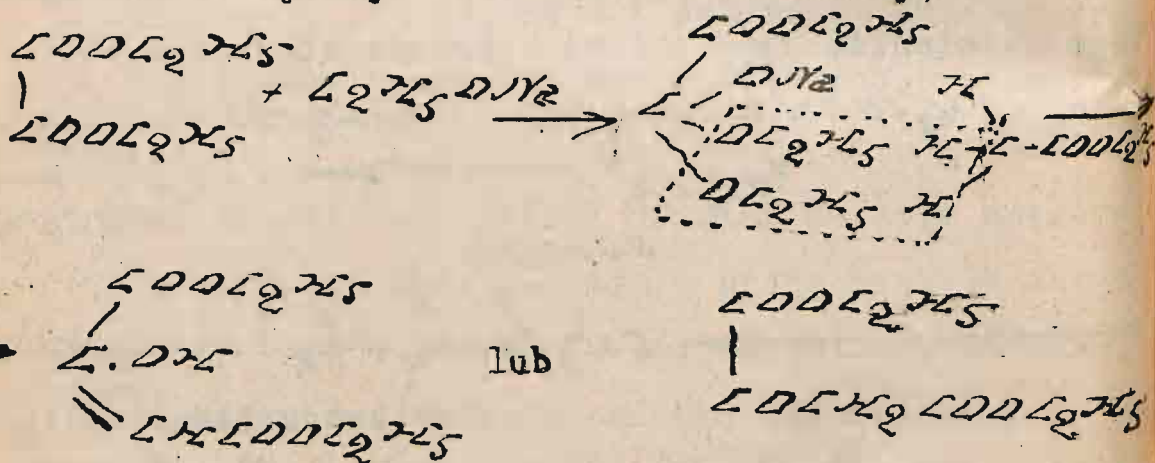 COOC2H5
|
COOC2H5
+ C2H5ONa →
COOC2H5
C
ONa H
OC2H5 H-C-COOC2H5 →
OC2H5 H
COOC2H5
C.OH
CHCOOC2H5
lub
COOC2H5
|
COCH2COOC2H5